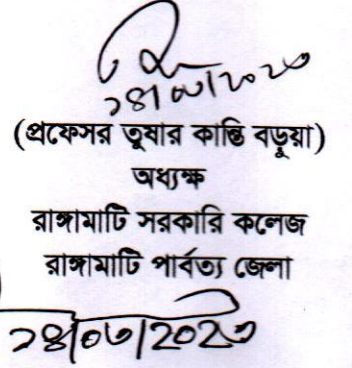 ১৪/০৬/২০২৩
(প্রফেসর তুষার কান্তি বড়ুয়া)
অধ্যক্ষ
রাঙ্গামাটি সরকারি কলেজ
রাঙ্গামাটি পার্বত্য জেলা
১৪/০৬/২০২৩